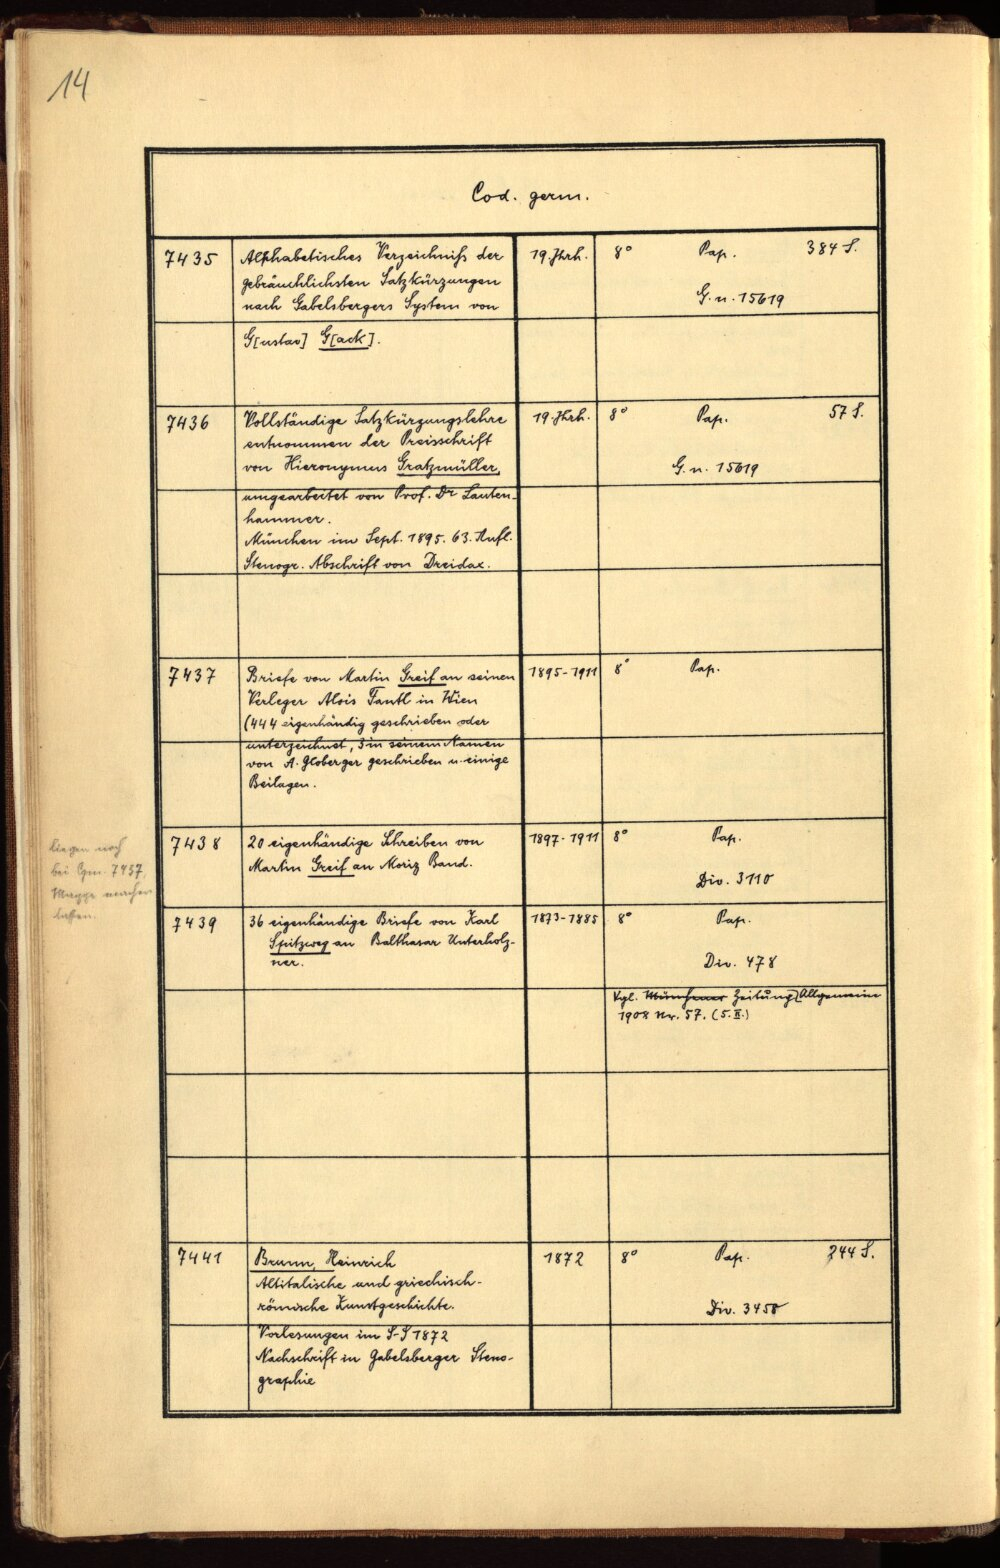 14
Cod. germ.
7435 Alphabetisches Verzeichniß der 19. Jhrh. 8° Pap. 384 S.
gebräuchlichsten Satzkürzungen
nach Gabelsbergers System von G. n. 15619
G[ustav] G[ack].
7436 Vollständige Satzkürzungslehre 19. Jhrh. 8° Pap. 57 S.
entnommen der Preisschrift
von Hieronymus Gratzmüller, G. n. 15619
umgearbeitet von Prof. Dr Lauten-
hammer.
München im Sept. 1895. 63. Aufl.
Stenogr. Abschrift von Dreidax.
7437 Briefe von Martin Greif an seinen 1895-1911 8° Pap.
Verleger Alois Tantl in Wien
(444 eigenhändig geschrieben oder
unterzeichnet, 3 in seinem Namen
von A. Globerger geschrieben u. einige
Beilagen.
7438 20 eigenhändige Schreiben von 1897-1911 8° Pap.
Martin Greif an Moriz Band.
Div. 3110
liegen noch
bei Cgm. 7437.
Mappe machen
lassen.
7439 36 eigenhändige Briefe von Karl 1873-1885 8° Pap.
Spitzweg an Balthasar Unterholz-
ner. Div. 478
Vgl. Münchener Zeitung Allgemeine
1908 Nr. 57. (5. II.)
7441 Brunn, Heinrich 1872 8° Pap. 244 S.
Altitalische und griechisch-
römische Kunstgeschichte. Div. 3458
Vorlesungen im S-S 1872
Nachschrift in Gabelsberger Steno-
graphie